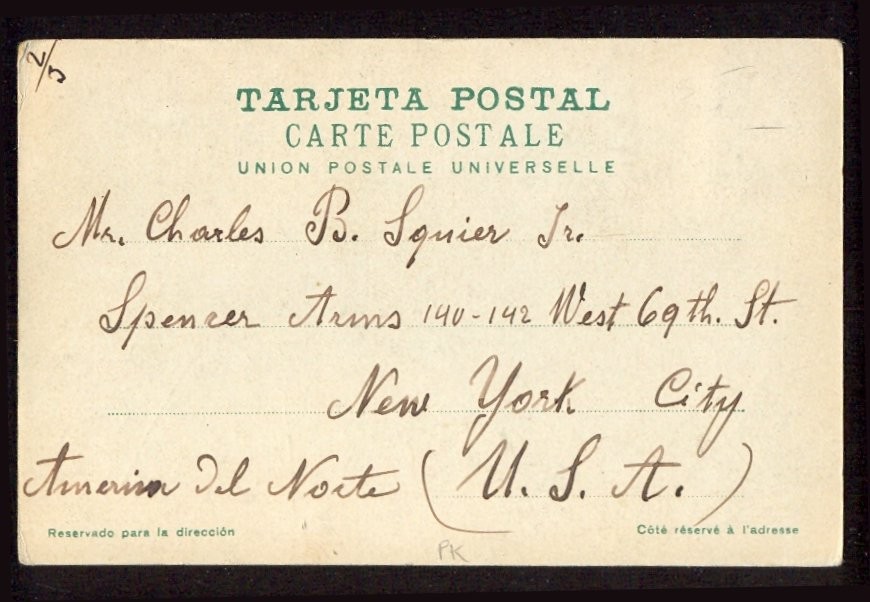 2/3
TARJETA POSTAL
CARTE POSTALE
UNION POSTALE UNIVERSELLE
Mr. Charles B. Squier Jr.
Spencer Arms 140-142 West 69th. St.
New York City
America del Norte (U. S. A.)
Reservado para la dirección
Côté réservé à l'adresse
PK